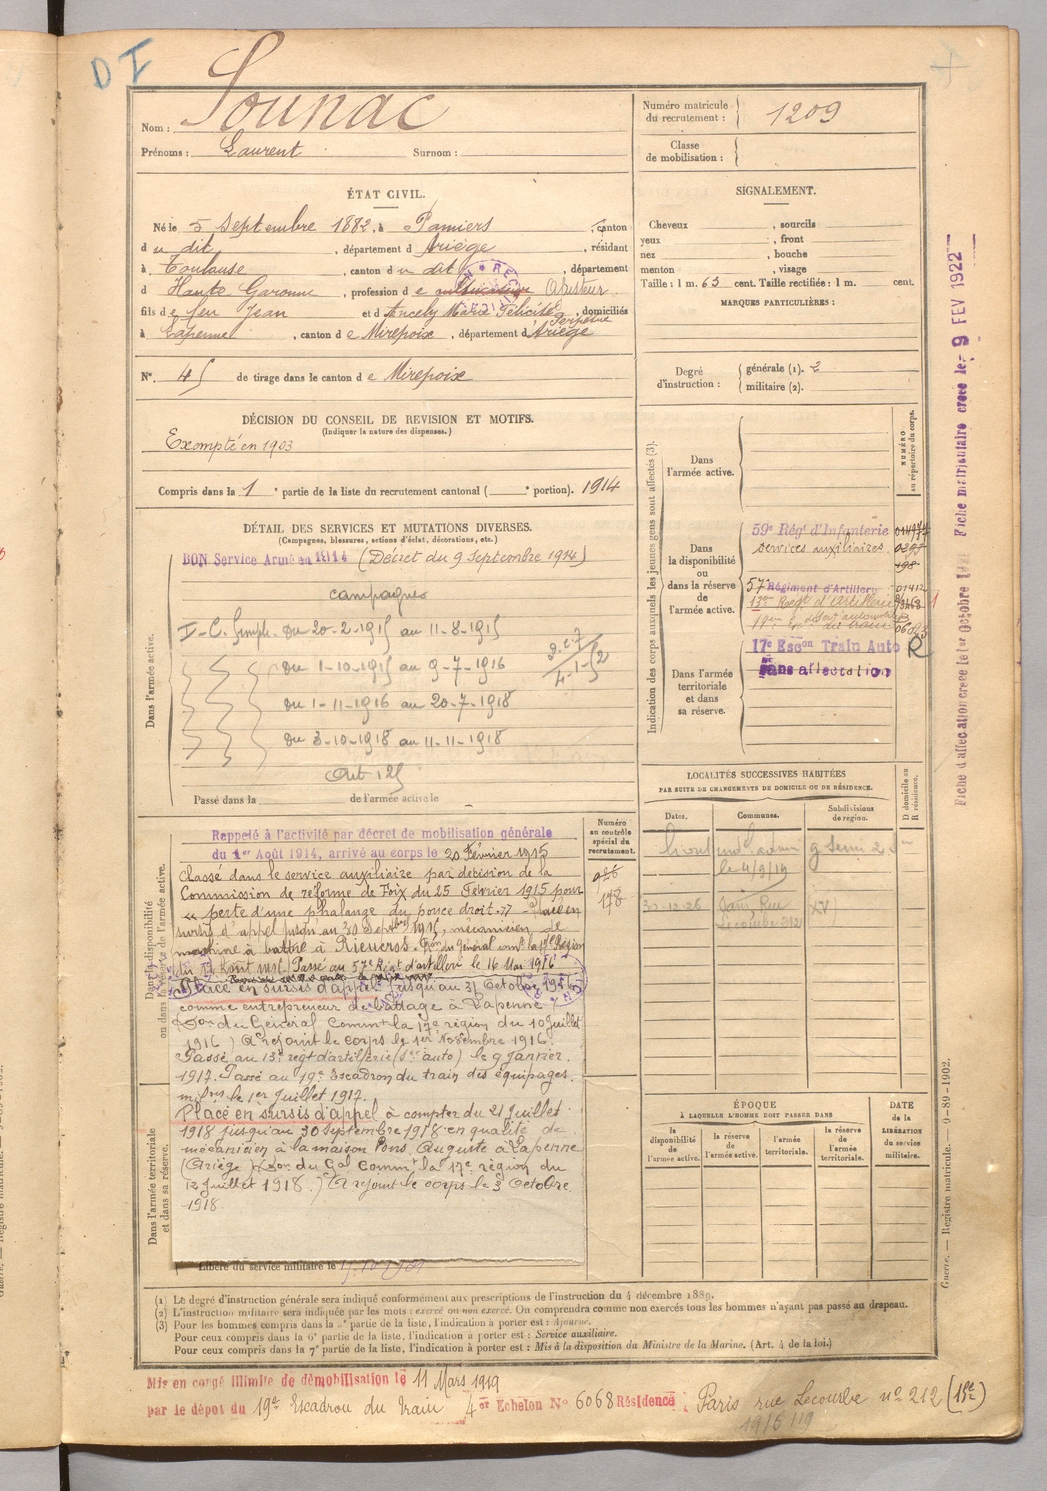 D I
Nom : Sounac
Prénoms : Laurent Surnom :
Numéro matricule du recrutement : 1209
Classe de mobilisation :
ÉTAT CIVIL.
Né le 5 Septembre 1882, à Pamiers, canton
du dit, département d Ariège, résidant
à Toulouse, canton du dit, département
d Haute Garonne, profession de Ajusteur
fils de feu Jean et d Ancely Marie Félicité Perpétue, domiciliés
à Lapenne, canton de Mirepoix, département d Ariège
N° 45 de tirage dans le canton de Mirepoix
SIGNALEMENT.
Cheveux , sourcils
yeux , front
nez , bouche
menton , visage
Taille : 1 m. 63 cent. Taille rectifiée : 1 m. cent.
MARQUES PARTICULIÈRES :
Degré d'instruction : générale (1). 2
militaire (2).
DÉCISION DU CONSEIL DE REVISION ET MOTIFS.
(Indiquer la nature des dispenses.)
Exempté en 1903
Compris dans la 1e partie de la liste du recrutement cantonal ( e portion). 1914
DÉTAIL DES SERVICES ET MUTATIONS DIVERSES.
(Campagnes, blessures, actions d'éclat, décorations, etc.)
Dans l'armée active.
BON Service Armé en 1914 (Décret du 9 Septembre 1914)
campagnes
I-C. Simple. Du 20-2-1915 au 11-8-1915
du 1-10-1915 au 9-7-1916
du 1-11-1916 au 20-7-1918
du 3-10-1918 au 11-11-1918
Art 125
Passé dans la de l'armée active le
Indication des corps auxquels les jeunes gens sont affectés (3).
NUMÉRO au répertoire du corps.
Dans l'armée active.
Dans la disponibilité ou dans la réserve de l'armée active.
59e Rég' d'Infanterie
services auxiliaires
57e Régiment d'Artillerie 01412
13e Régt d'Artillerie
17e Escon Train Auto R
Dans l'armée territoriale et dans sa réserve.
Sans affectation
Dans la disponibilité ou dans la réserve de l'armée active.
Numéro au contrôle spécial du recrutement.
178
Rappelé à l'activité par décret de mobilisation générale
du 1er Août 1914, arrivé au corps le 20 Février 1915
Classé dans le service auxiliaire par décision de la
Commission de réforme de Foix du 25 Février 1915 pour
" perte d'une phalange du pouce droit." Placé en
sursis d'appel jusqu'au 30 Septbre 1915, mécanicien de
machine à battre à Rieucros. Don du Général commt la 17e Région
du 12 Août 1915. Passé au 57e Régt d'artillerie le 16 Mai 1916
Placé en sursis d'appel jusqu'au 31 Octobre 1916
comme entrepreneur de battage à Lapenne
(Don du Général Commt la 17e région du 10 juillet
1916) A rejoint le corps le 1er Novembre 1916.
Passé au 13e régt d'artillerie (Son auto) le 9 janvier
1917. Passé au 19e Escadron du train des équipages
milres le 1er Juillet 1917.
Placé en sursis d'appel à compter du 21 juillet
1918 jusqu'au 30 septembre 1918 en qualité de
mécanicien à la maison Pons Auguste à Lapenne
(Ariège) (Don du Gal Commt la 17e région du
12 juillet 1918.) A rejoint le corps le 3 Octobre
1918.
Dans l'armée territoriale et dans sa réserve.
Libéré du service militaire le
LOCALITÉS SUCCESSIVES HABITÉES
PAR SUITE DE CHANGEMENTS DE DOMICILE OU DE RÉSIDENCE.
Dates. Communes. Subdivisions de région. D domicile ou R résidence.
le 4/9/19
30-12-26 Paris Rue Lecourbe 212 XV
ÉPOQUE
À LAQUELLE L'HOMME DOIT PASSER DANS
la disponibilité de l'armée active. la réserve de l'armée active. l'armée territoriale. la réserve de l'armée territoriale.
DATE de la LIBÉRATION du service militaire.
(1) Le degré d'instruction générale sera indiqué conformément aux prescriptions de l'instruction du 4 décembre 1889.
(2) L'instruction militaire sera indiquée par les mots : exercé ou non exercé. On comprendra comme non exercés tous les hommes n'ayant pas passé au drapeau.
(3) Pour les hommes compris dans la 5e partie de la liste, l'indication à porter est : Ajourné.
Pour ceux compris dans la 6e partie de la liste, l'indication à porter est : Service auxiliaire.
Pour ceux compris dans la 7e partie de la liste, l'indication à porter est : Mis à la disposition du Ministre de la Marine. (Art. 4 de la loi.)
Mis en congé illimité de démobilisation le 11 Mars 1919
par le dépôt du 19e Escadron du Train 4e Echelon N° 6068 Résidence : Paris rue Lecourbe n° 212 (15e)
Fiche d'affectation créée le 1er Octobre Fiche matriculaire créée le 9 FEV 1922
Guerre. — Registre matricule. — 9-89-1902.